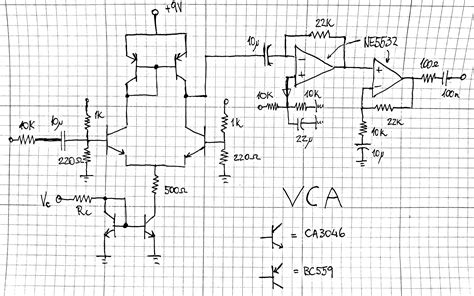 +9V
10µ
22K
NE5532
100Ω
100n
10K
10K
22µ
22K
10K
10µ
10K
10µ
1K
220Ω
1K
220Ω
500Ω
Vc
Rc
VCA
= CA3046
= BC559